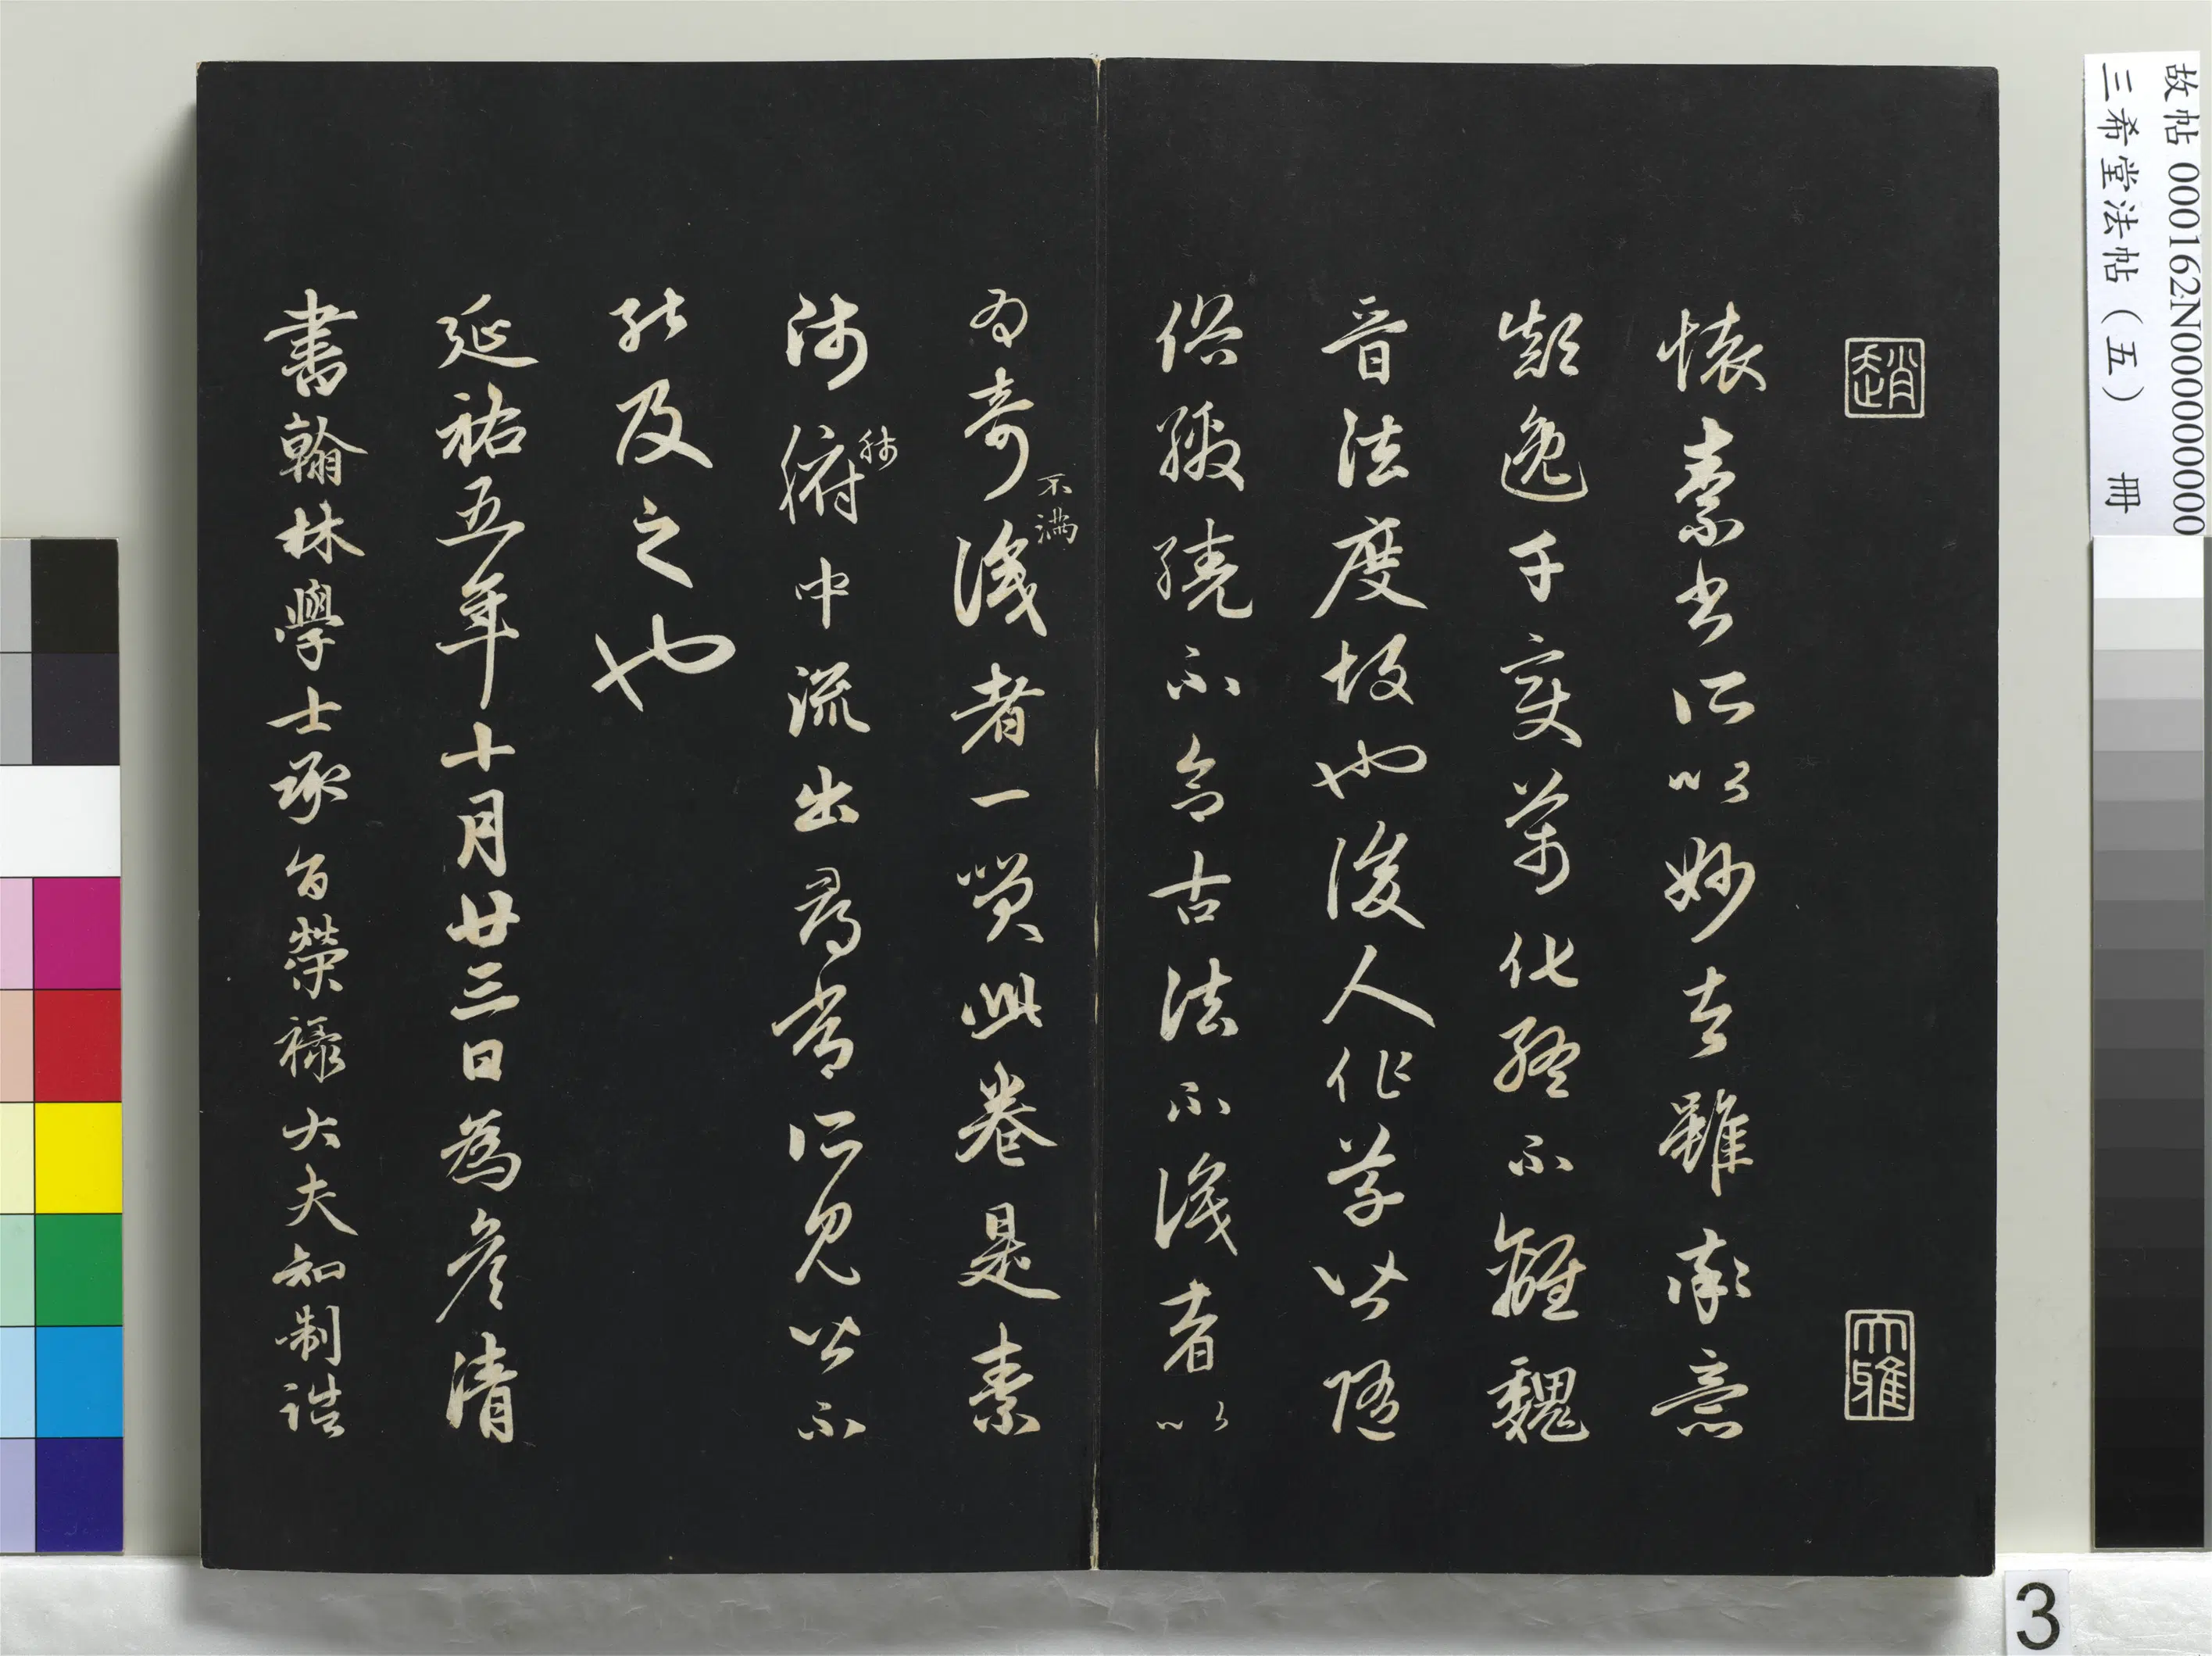 故帖 000162N000000000
三希堂法帖（五） 冊
趙
大雅
懷素書所以妙者雖率意
顛逸千變萬化終不離魏
晉法度故也後人作草皆隨
俗繳繞不合古法不識者以
為奇不滿識者一笑此卷是素
師肺腑中流出尋常所見皆不
能及之也
延祐五年十月廿三日為彥清
書翰林學士承旨榮祿大夫知制誥
3